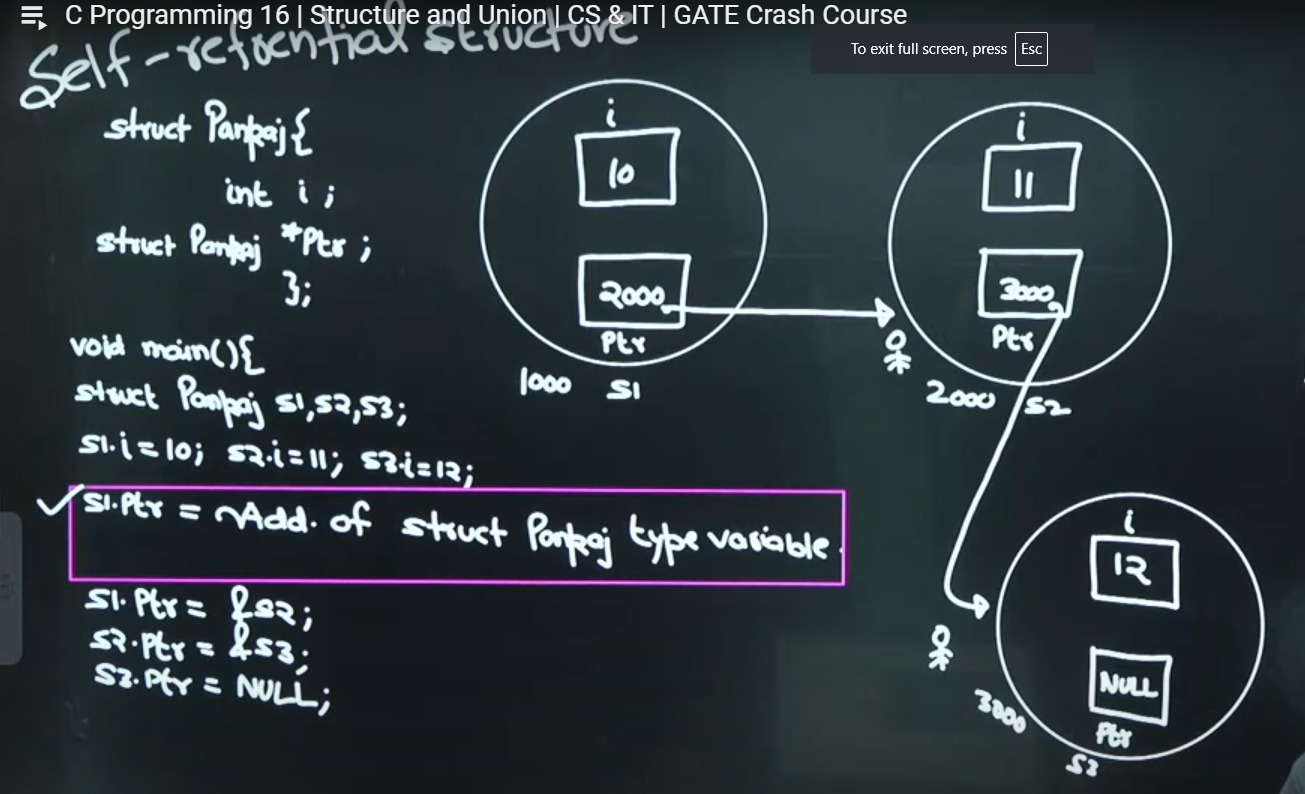 C Programming 16 | Structure and Union | CS & IT | GATE Crash Course
To exit full screen, press Esc
Self-refrential structure
struct Pankaj{
int i;
struct Pankaj *Ptr;
};
void main(){
struct Pankaj S1,S2,S3;
S1.i=10; S2.i=11; S3.i=12;
S1.Ptr = Add. of struct Pankaj type variable.
S1.Ptr = &S2;
S2.Ptr = &S3;
S3.Ptr = NULL;
i
10
2000
Ptr
1000 S1
i
11
3000
Ptr
2000 S2
i
12
NULL
Ptr
3000
S3